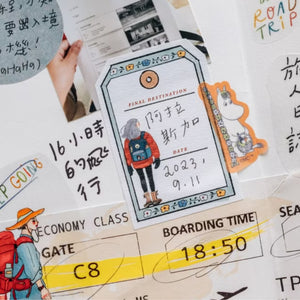 要出入境
攻!
(HaHaHa)
ROAD
TRIP
FINAL DESTINATION
阿拉
斯加
DATE
2023.
9.11
16小時
的飛
行
P GOING
ECONOMY CLASS
GATE
C8
BOARDING TIME
18:50
SEA
TP